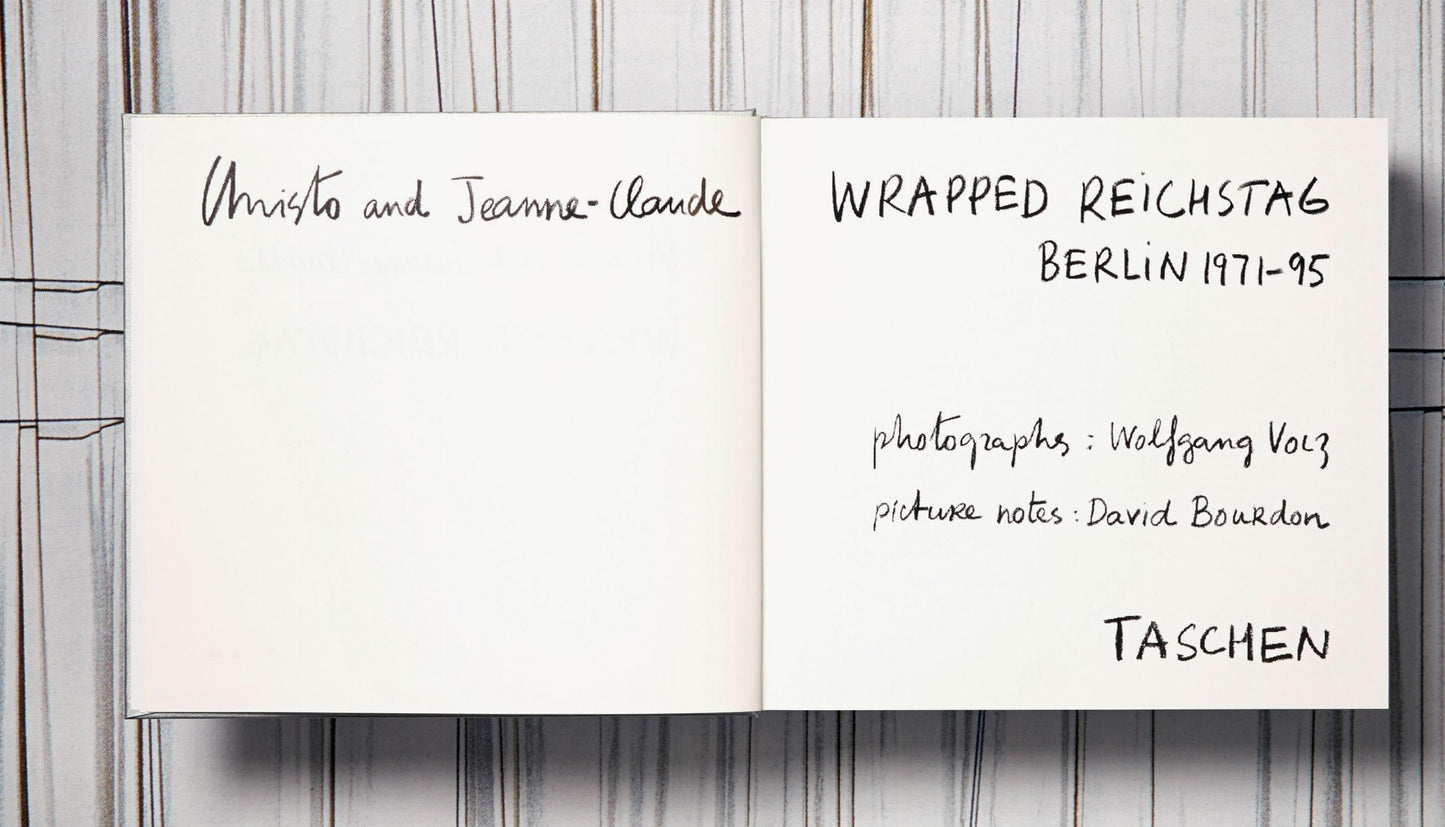 Christo and Jeanne-Claude
WRAPPED REICHSTAG
BERLIN 1971-95
photographs : Wolfgang Volz
picture notes : David Bourdon
TASCHEN